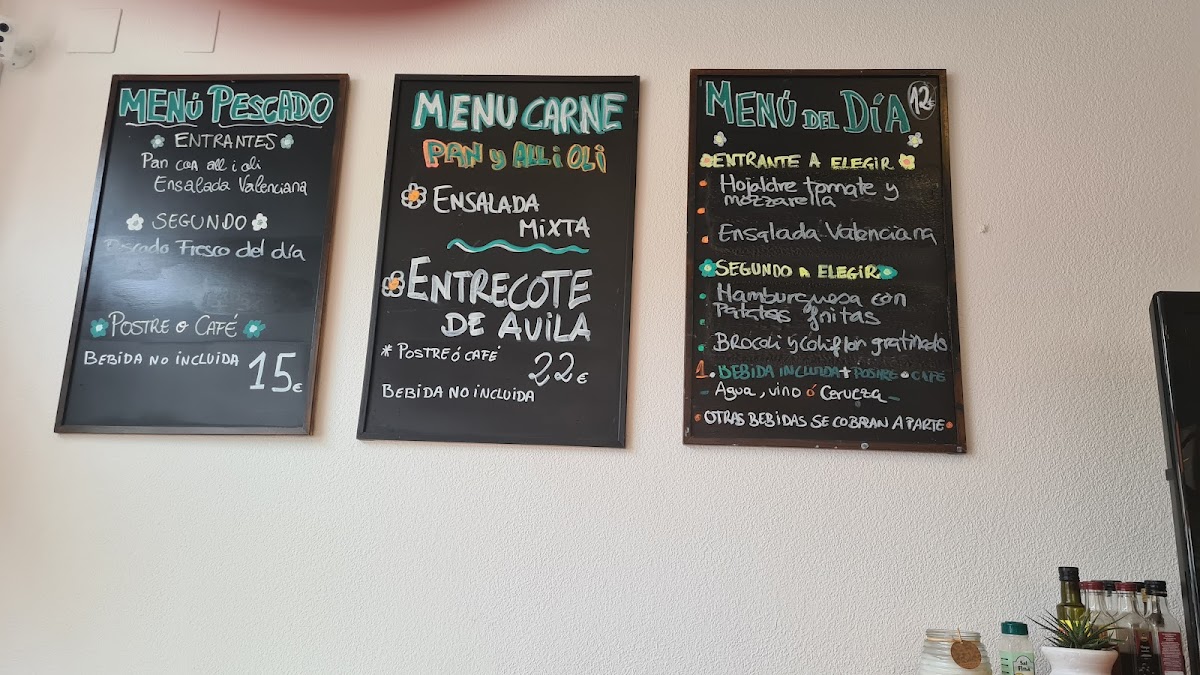 MENÚ PESCADO
ENTRANTES
Pan con all i oli
Ensalada Valenciana
SEGUNDO
Pescado Fresco del día
POSTRE o CAFÉ
BEBIDA NO INCLUIDA
15€
MENU CARNE
PAN y ALL i OLi
ENSALADA
MiXTA
ENTRECOTE
DE AVILA
* POSTRE ó CAFÉ
22€
BEBIDA NO INCLUIDA
MENÚ DEL DÍA 12€
ENTRANTE A ELEGIR
Hojaldre tomate y
mozzarella
Ensalada Valenciana
SEGUNDO A ELEGIR
Hamburguesa con
Patatas fritas
Brócoli y coliflor gratinado
1. BEBIDA INCLUIDA + POSTRE o CAFÉ
- Agua, vino ó Cerveza -
OTRAS BEBIDAS SE COBRAN APARTE
Sal
Fina